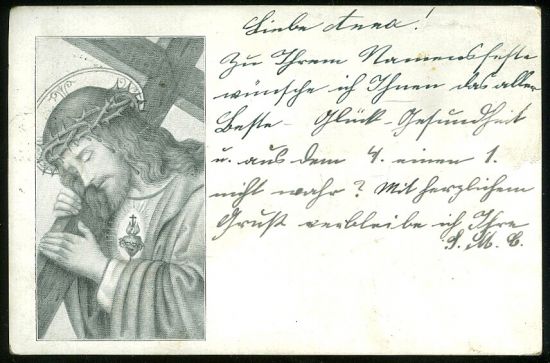 Liebe Anna!
Zu Ihrem Namensfeste
wünsche ich Ihnen das aller
Beste - Glück - Gesundheit
u. aus dem 4. einen 1.
nicht wahr? Mit herzlichem
Gruß verbleibe ich Ihre
S. M. C.